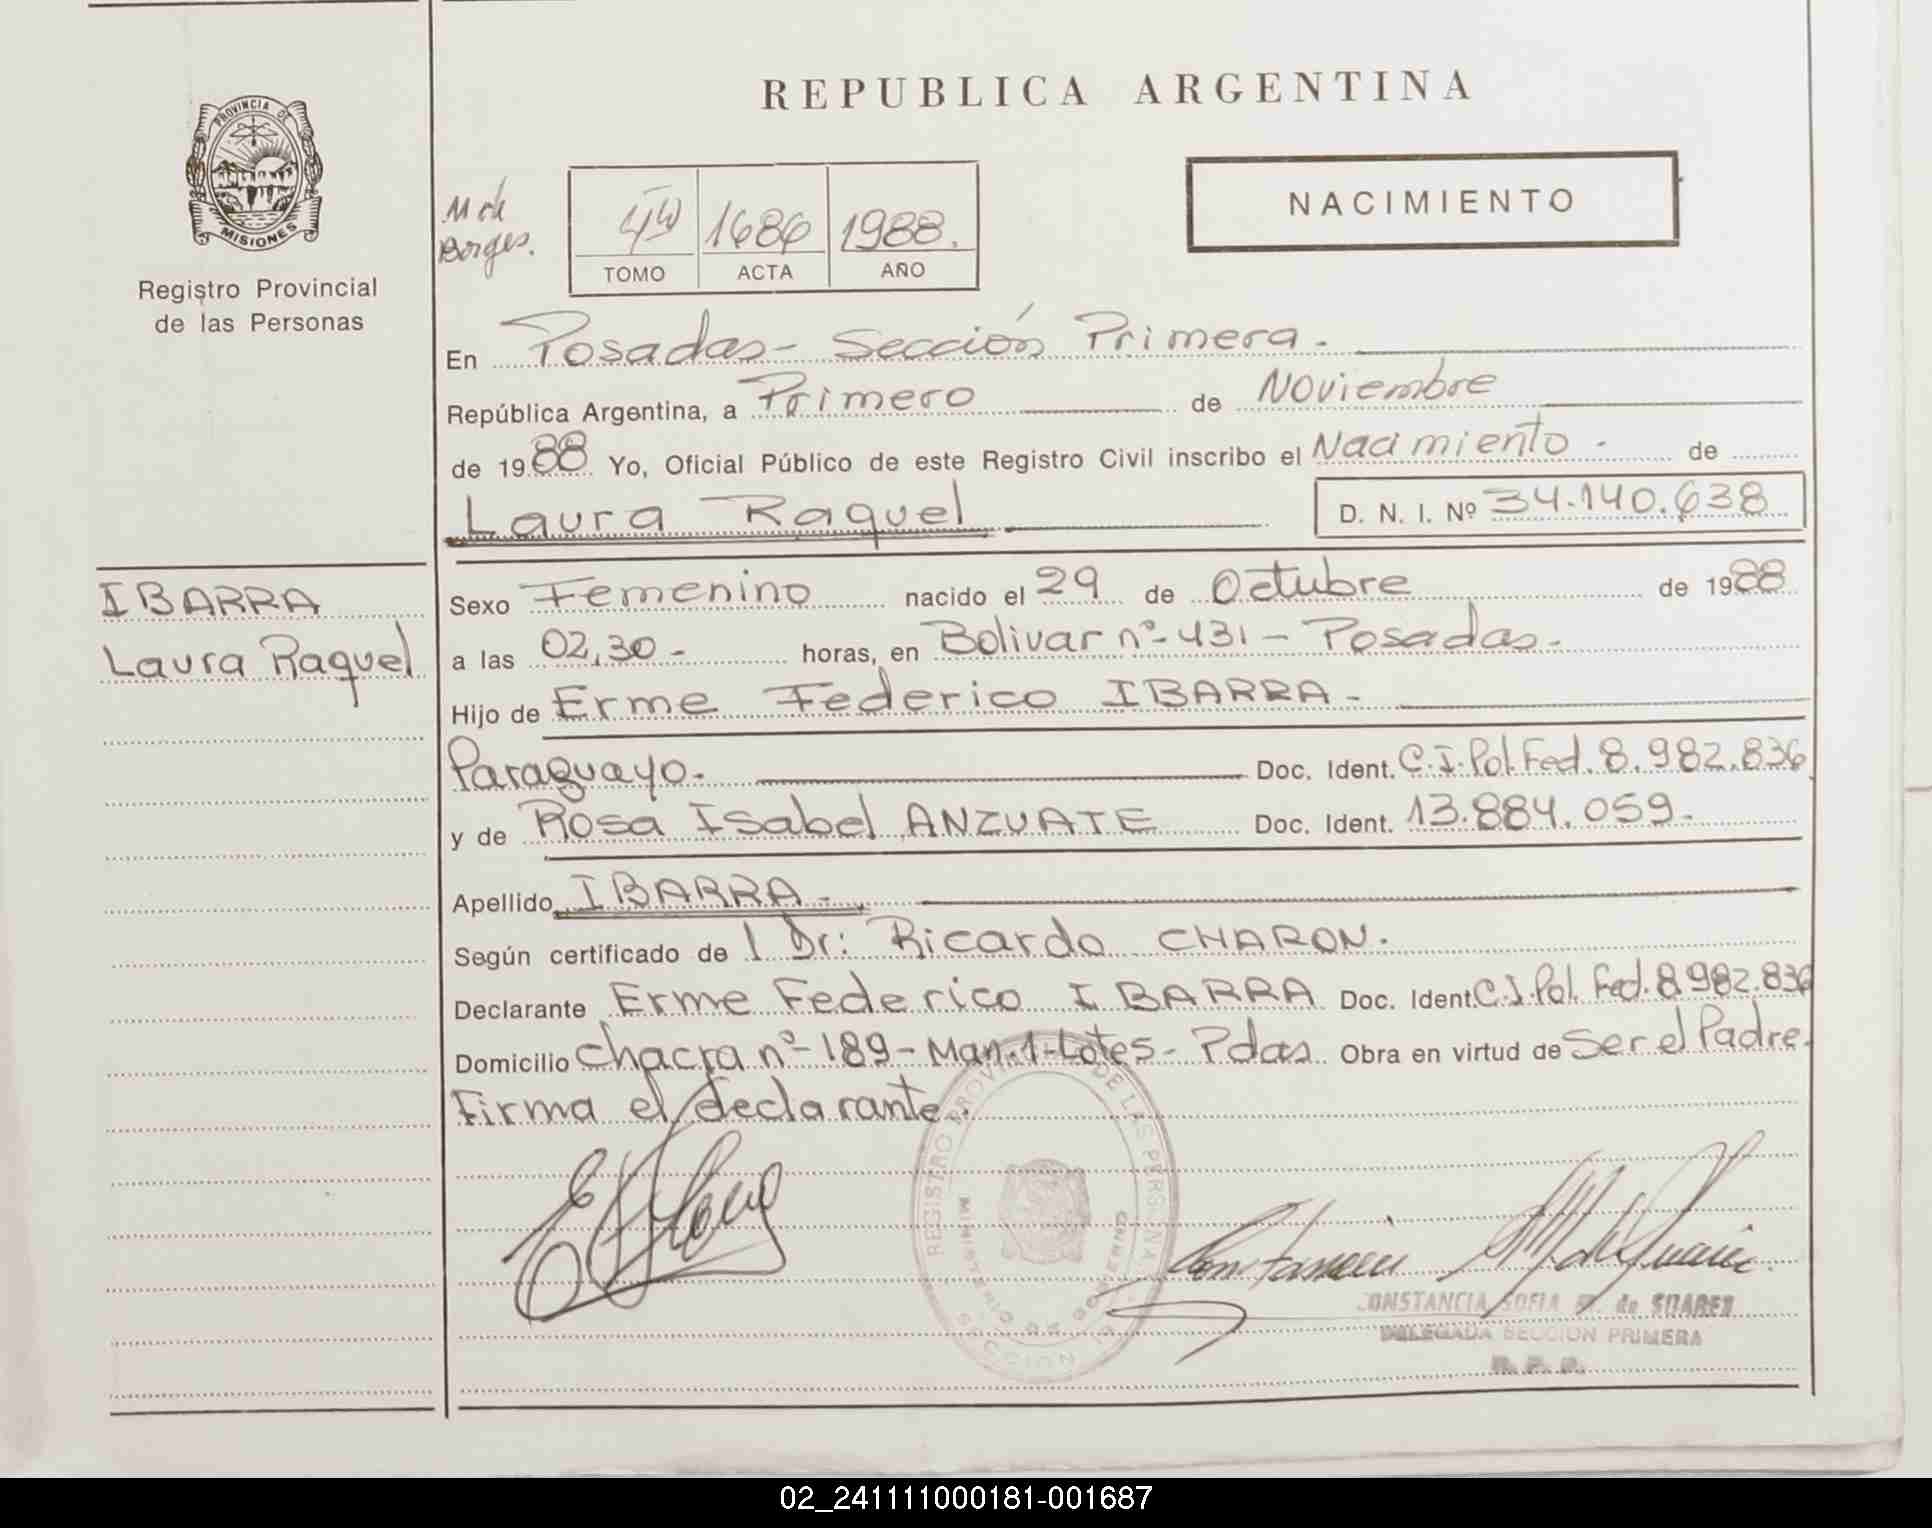 REPUBLICA ARGENTINA
PROVINCIA DE
MISIONES
Registro Provincial
de las Personas
NACIMIENTO
M de
Borges.
1686 1988.
TOMO ACTA AÑO
En Posadas - Sección Primera.
República Argentina, a Primero de Noviembre
de 1988 Yo, Oficial Público de este Registro Civil inscribo el Nacimiento - de
Laura Raquel D. N. I. Nº 34.140.638
IBARRA
Laura Raquel
Sexo Femenino nacido el 29 de Octubre de 1988
a las 02,30 - horas, en Bolivar nº- 431 - Posadas.
Hijo de Erme Federico IBARRA -
Paraguayo. Doc. Ident. C.I. Pol. Fed. 8.982.836
y de Rosa Isabel ANZUATE Doc. Ident. 13.884.059.
Apellido IBARRA -
Según certificado de l Dr: Ricardo CHARON.
Declarante Erme Federico IBARRA Doc. Ident. C.I. Pol. Fed. 8.982.836
Domicilio Chacra nº- 189 - Man. 1 - Lote 5 - Pdas Obra en virtud de Ser el Padre.
Firma el declarante.
REGISTRO PROVINCIAL DE LAS PERSONAS
MINISTERIO DE GOBIERNO
SECCION 1
CONSTANCIA SOFIA M. de SUAREZ
DELEGADA SECCION PRIMERA
R. P. P.
02_241111000181-001687